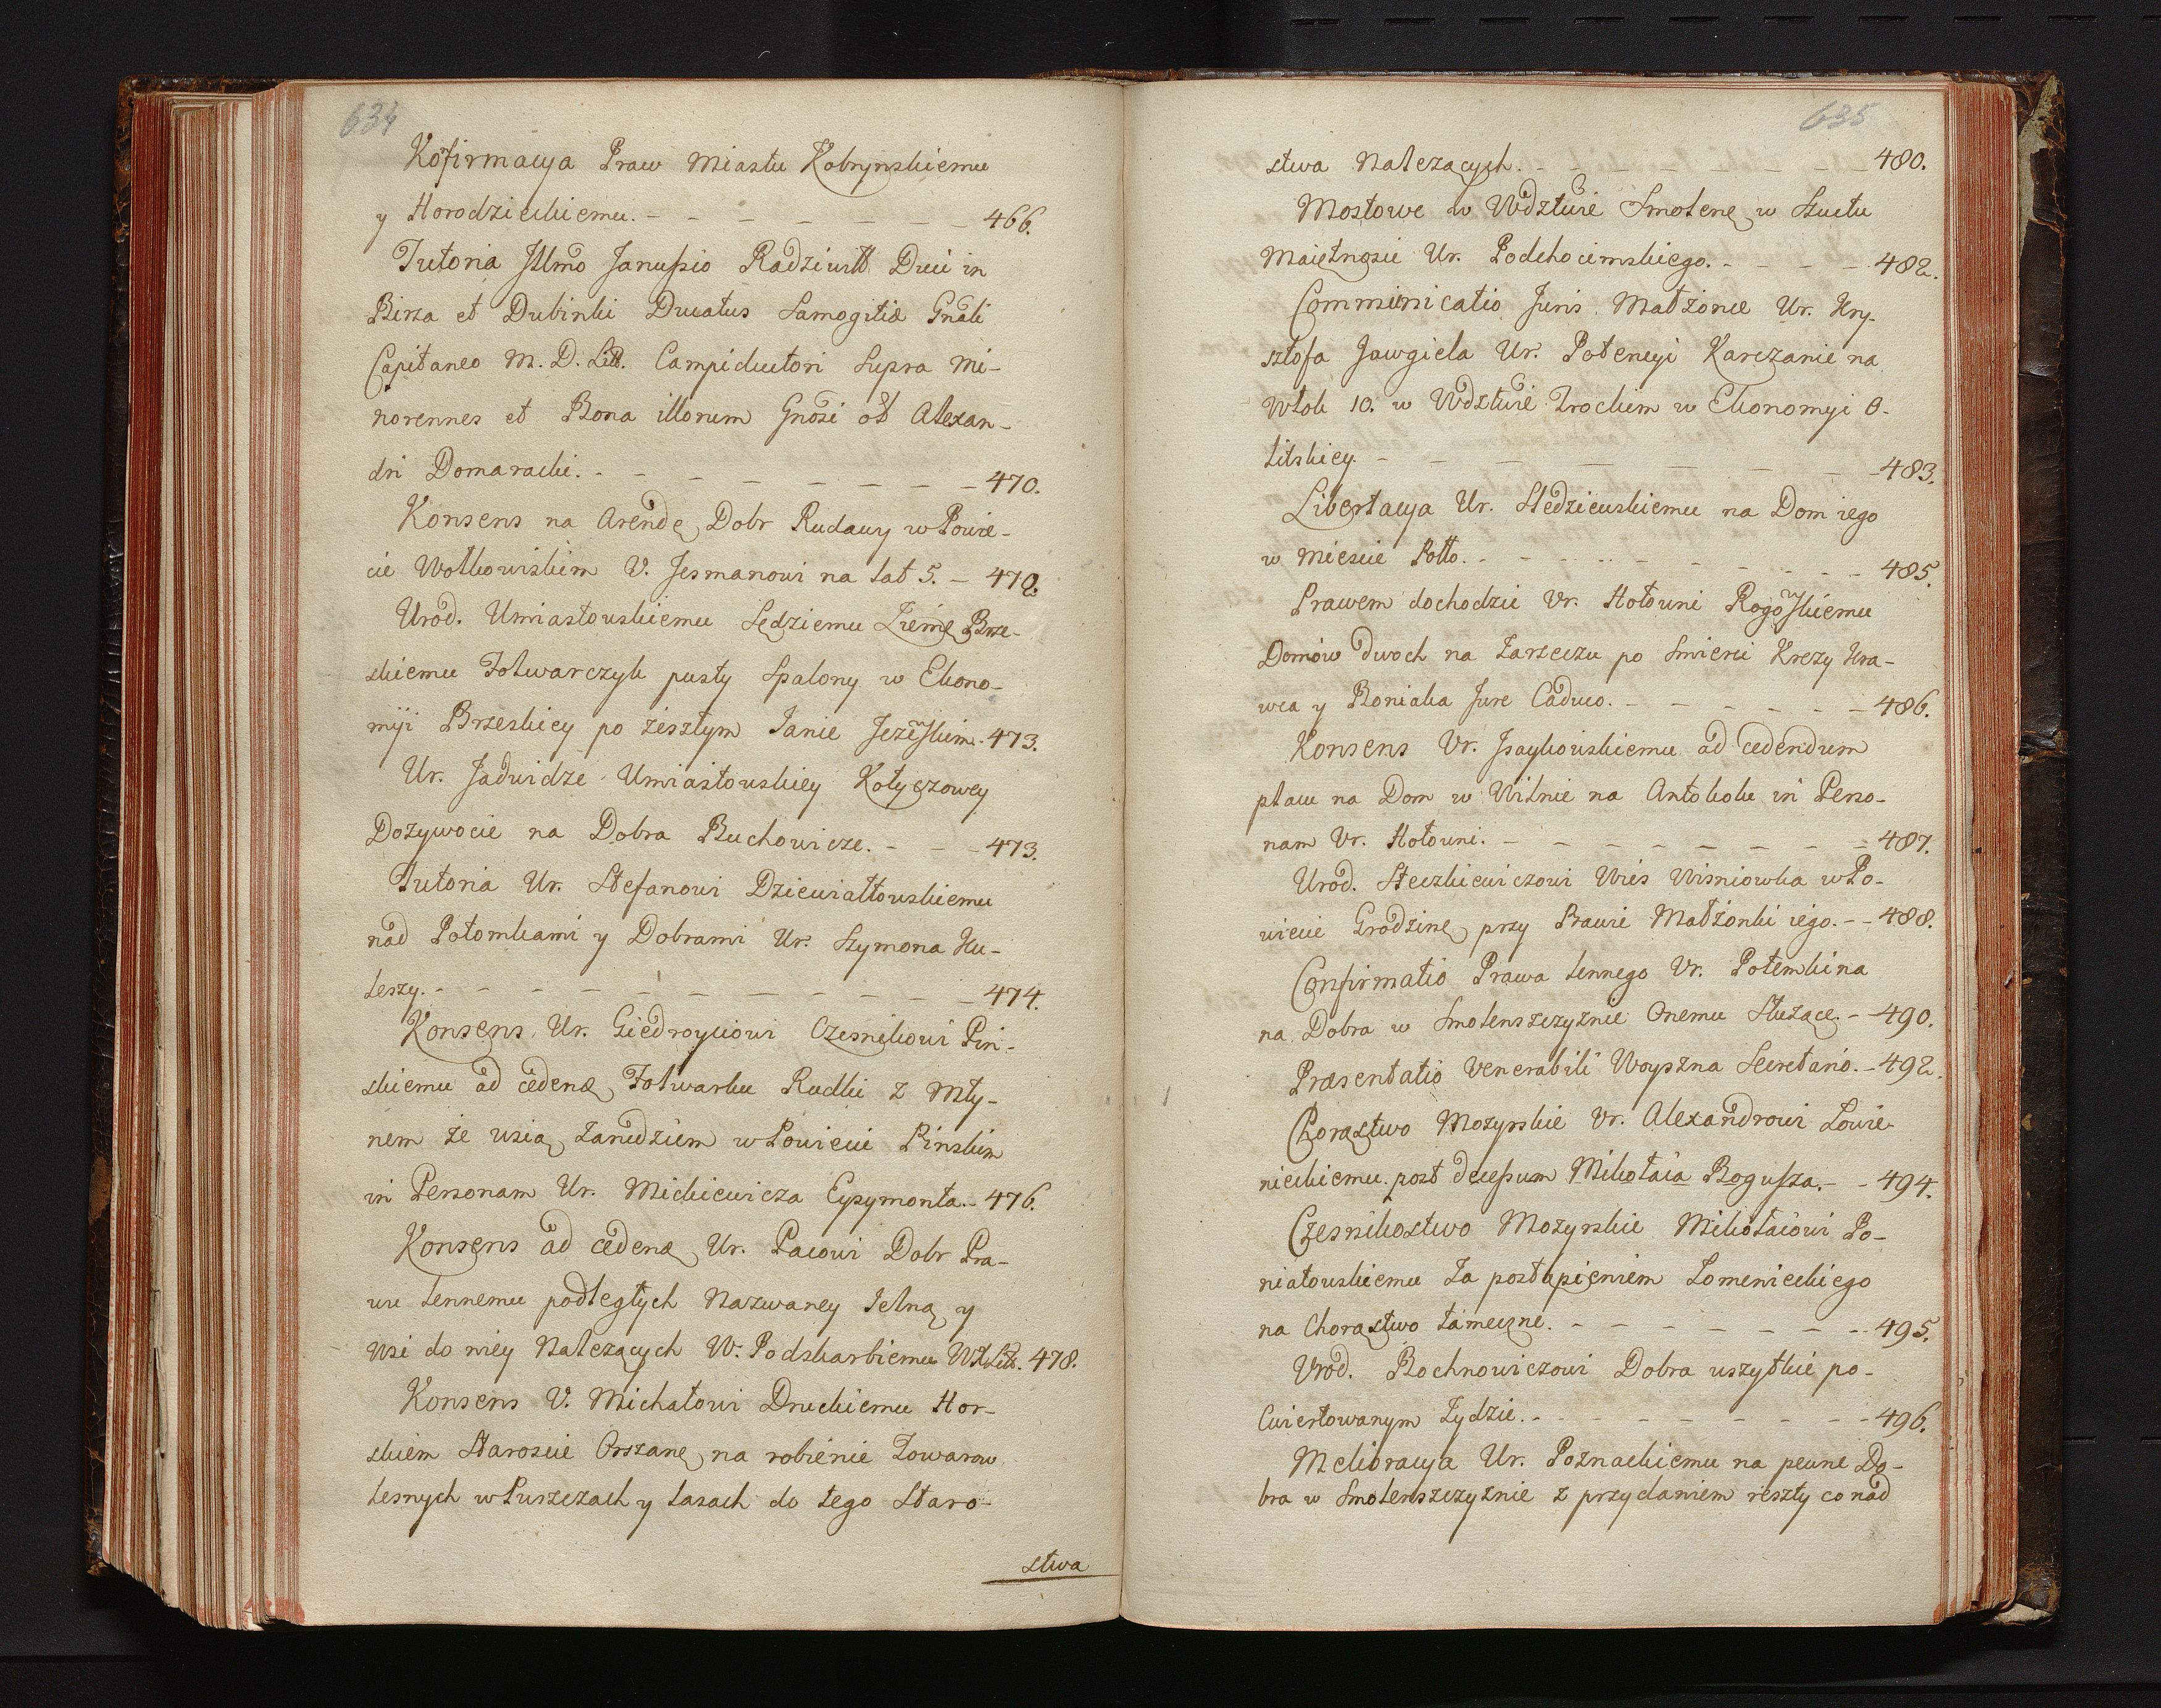 634
Kofirmacya Praw Miastu Kobrynskiemu
y Horodzieckiemu. - - - - - - - 466.
Tutoria Jllmo Janussio Radziwill Duci in
Birza et Dubinki Ducatus Samogitiæ Gnāli
Capitaneo M. D. Litt. Campiductori Supra Mi-
norennes et Bona illorum Gnosi ob Alexan-
dri Domaracki. - - - - - - - - 470.
Konsens na Arendę Dobr Rudawy w Powie-
cie Wołkowiskim V. Jesmanowi na lat 5. - 472.
Urod. Umiastowskiemu Sędziemu Ziemę Brze-
skiemu Folwarczyk pusty Spalony w Ekono-
myi Brzeskiey po zeszłym Janie Jezeskim. 473.
Ur. Jadwidze Umiastowskiey Kotyczowey
Dozywocie na Dobra Ruchowicze. - - - 473.
Tutoria Ur. Stefanowi Dziewiałtowskiemu
nad Potomkami y Dobrami Ur. Szymona Ku-
leszy. - - - - - - - - - - - 474.
Konsens Ur. Giedroyciowi Czesnikowi Pin-
skiemu ad cedenđ Folwarku Rudki z Mły-
nem ze wsią Zanidziem w Powiecie Pinskim
in Personam Ur. Mickiewicza Eysymonta. - 476.
Konsens ad cedenđ Ur. Pacowi Dobr Pra-
wu lennemu podległych Nazwaney Jelną y
Wsi do niey Nalezących W. Podskarbiemu WXLitt. 478.
Konsens V. Michałowi Druckiemu Hor-
skiem Staroscie Orszanę na robienie Towarow
lesnych w Puszczach y Lasach do tego Staro-
stwa
635
stwa Nalezących. - - - - - - - 480.
Mostowe w Wdztwie Smolenę w Szucłu
Maiętnosci Ur. Podchocimskiego. - - - - 482.
Communicatio Juris Małżonce Ur. Kry-
sztofa Jawgieła Ur. Potencyi Karczanie na
Włok 10. w Wdztwie Trockim w Ekonomyi O-
litskiey. - - - - - - - - 483.
Libertacya Ur. Sledziewskiemu na Dom iego
w Miescie Potto. - - - - - - - - 485.
Prawem dochodzic Vr. Hołowni Rogoskiemu
Domow dwoch na Zarzeczu po Smierci Krezy Kra-
wca y Boniaka Jure Caduco. - - - - - 486.
Konsens Vr. Jsaykowskiemu ad cedendum
placu na Dom w Wilnie na Antokolu in Perso-
nam Vr. Hołowni. - - - - - - - - 487.
Urod. Steczkiewiczowi Wies Wisniowka w Po-
wiecie Grodzinę przy Prawie Małżonki iego. - - 488.
Confirmatio Prawa lennego Vr. Potemkina
na Dobra w Smolenszczyznie Onemu Służące. - 490.
Præsentatio Venerabili Woyszna Secretario. - 492.
Chorąstwo Mozyrskie Vr. Alexandrowi Łowie-
nieckiemu post decessum Mikołaia Bogussza. - - 494.
Czesnikostwo Mozyrskie Mikołaiowi Po-
niatowskiemu Za postąpieniem Łomenieckiego
na Chorąstwo tameczne. - - - - - - - 495.
Urod. Bochnowiczowi Dobra wszytkie po-
Cwiertowanym Zydzie. - - - - - - - 496.
Melioracya Ur. Poznackiemu na pewne Do-
bra w Smolenszczyznie z przydaniem reszty co nad